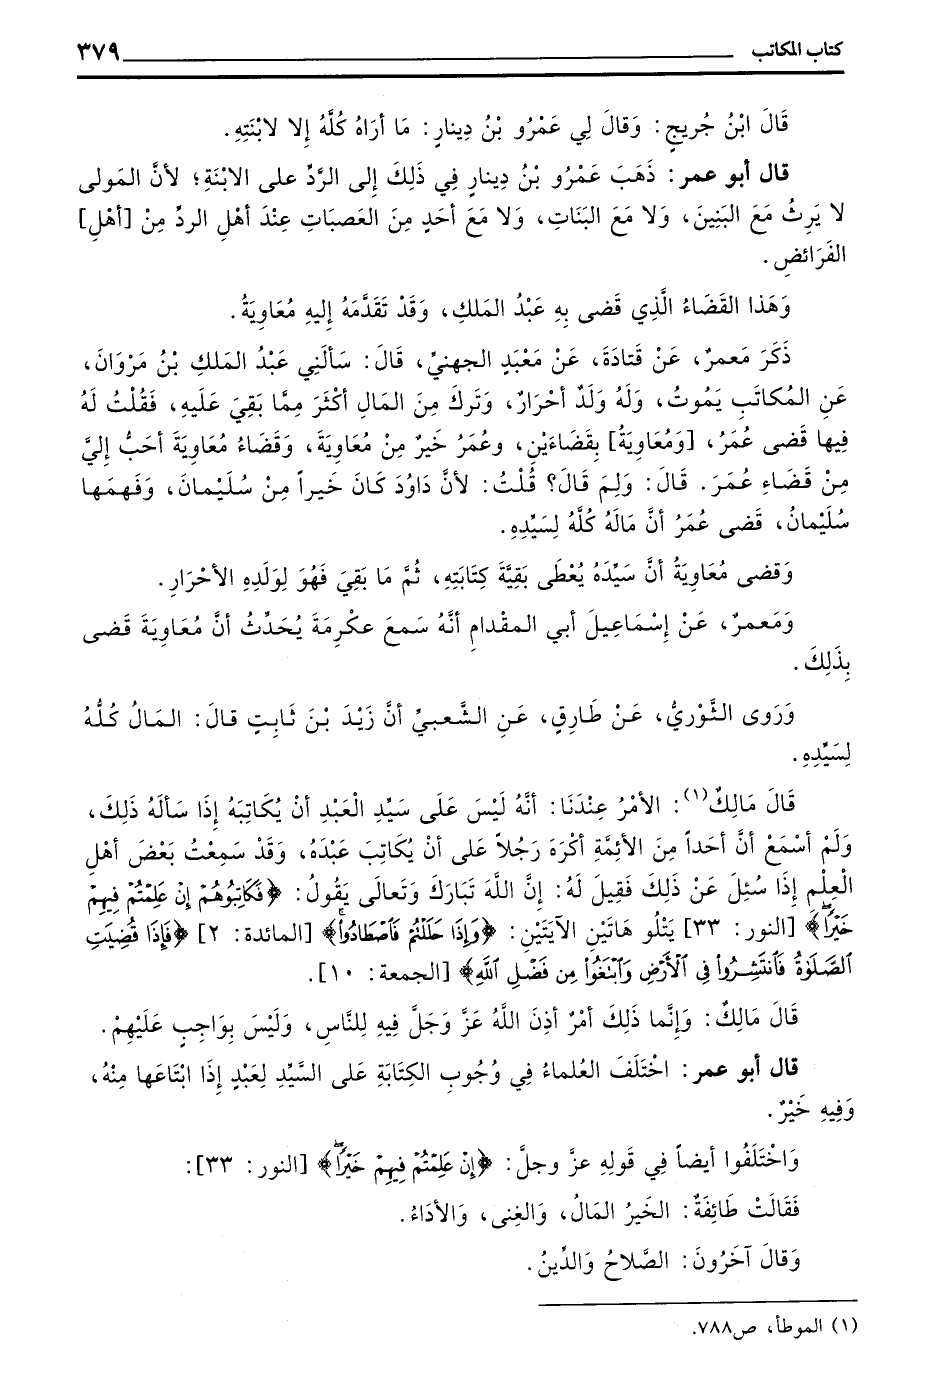 كتاب المكاتب ٣٧٩
قَالَ ابْنُ جُريجٍ: وَقالَ لِي عَمْرُو بْنُ دِينارٍ: مَا أرَاهُ كُلَّهُ إِلا لابْنَتِهِ.
قال أبو عمر: ذَهَبَ عَمْرُو بْنُ دِينارٍ فِي ذَلِكَ إلى الرَّدِّ على الابْنَةِ؛ لأنَّ المَولى
لا يَرِثُ مَعَ البَنِينَ، وَلا مَعَ البَنَاتِ، وَلا مَعَ أحَدٍ مِنَ العَصبَاتِ عِنْدَ أهْلِ الردِّ مِنْ [أهْلِ]
الفَرَائضِ.
وَهَذا القَضَاءُ الَّذِي قَضى بِهِ عَبْدُ المَلكِ، وَقَدْ تَقَدَّمَهُ إِليهِ مُعَاوِيَةُ.
ذَكَرَ مَعمرٌ، عَنْ قتادَةَ، عَنْ مَعْبَدٍ الجهنيِّ، قَالَ: سَألَنِي عَبْدُ الملَكِ بْنُ مَرْوَانَ،
عَنِ المُكاتَبِ يَموتُ، وَلَهُ وَلَدٌ أحْرَارٌ، وَتَركَ مِنَ المَالِ أكْثَرَ مِمَّا بَقِيَ عَلَيهِ، فَقُلْتُ لَهُ
فِيها قَضى عُمَرُ، [وَمُعَاوِيَةُ] بِقَضَاءَيْنِ، وعُمَرُ خَيرٌ مِنْ مُعَاوِيَةَ، وَقَضَاءُ مُعَاوِيَةَ أحَبُّ إليَّ
مِنْ قَضَاءِ عُمَرَ. قَالَ: وَلِمَ قَالَ؟ قُلْتُ: لأنَّ دَاوُدَ كَانَ خَيراً مِنْ سُلَيْمانَ، وَفَهِمَها
سُلَيْمانُ، قَضى عُمَرُ أنَّ مَالَهُ كُلَّهُ لِسَيِّدِهِ.
وَقضى مُعَاوِيَةُ أنَّ سَيِّدَهُ يُعْطَى بَقِيَّةَ كِتَابَتِهِ، ثُمَّ مَا بَقِيَ فَهُوَ لِوَلَدِهِ الأحْرَارِ.
وَمَعمرٌ، عَنْ إِسْمَاعِيلَ أبي المقدامِ أنَّهُ سَمعَ عكْرِمَةَ يُحَدِّثُ أنَّ مُعَاوِيَةَ قَضى
بِذَلِكَ.
وَرَوى الثَّوْرِيُّ، عَنْ طَارِقٍ، عَنِ الشَّعبيِّ أنَّ زَيْدَ بْنَ ثَابِتٍ قالَ: المَالُ كُلُّهُ
لِسَيِّدِهِ.
قَالَ مَالِكٌ(١): الأمْرُ عِنْدَنَا: أنَّهُ لَيْسَ عَلَى سَيِّدِ الْعَبْدِ أنْ يُكَاتِبَهُ إِذَا سَألَهُ ذَلِكَ،
وَلَمْ أسْمَعْ أنَّ أحَداً مِنَ الأئِمَّةِ أكْرَهَ رَجُلاً عَلى أنْ يُكَاتِبَ عَبْدَهُ، وَقَدْ سَمِعْتُ بَعْضَ أهْلِ
الْعِلْمِ إِذَا سُئِلَ عَنْ ذَلِكَ فَقِيلَ لَهُ: إِنَّ اللَّهَ تَبَارَكَ وَتَعالَى يَقُولُ: ﴿فَكَاتِبُوهُمْ إِنْ عَلِمْتُمْ فِيهِمْ
خَيْرًا﴾ [النور: ٣٣] يَتْلُو هَاتَيْنِ الآيَتَيْنِ: ﴿وَإِذَا حَلَلْتُمْ فَاصْطَادُوا﴾ [المائدة: ٢] ﴿فَإِذَا قُضِيَتِ
الصَّلَوٰةُ فَانتَشِرُوا فِي الْأَرْضِ وَابْتَغُوا مِن فَضْلِ اللَّهِ﴾ [الجمعة: ١٠].
قَالَ مَالِكٌ: وَإِنَّما ذَلِكَ أمْرٌ أذِنَ اللَّهُ عَزَّ وَجَلَّ فِيهِ لِلنَّاسِ، وَلَيْسَ بِوَاجِبٍ عَلَيْهِمْ.
قال أبو عمر: اخْتَلَفَ العُلماءُ فِي وُجُوبِ الكِتَابَةِ عَلى السَّيِّدِ لِعَبْدٍ إِذَا ابْتَاعَها مِنْهُ،
وَفِيهِ خَيْرٌ.
وَاخْتَلَفُوا أيضاً فِي قَولِهِ عزَّ وجلَّ: ﴿إِنْ عَلِمْتُمْ فِيهِمْ خَيْرًا﴾ [النور: ٣٣]:
فَقَالَتْ طَائِفَةٌ: الخَيرُ المَالُ، وَالغِنى، وَالأدَاءُ.
وَقالَ آخَرُونَ: الصَّلاحُ وَالدِّينُ.
(١) الموطأ، ص٧٨٨.